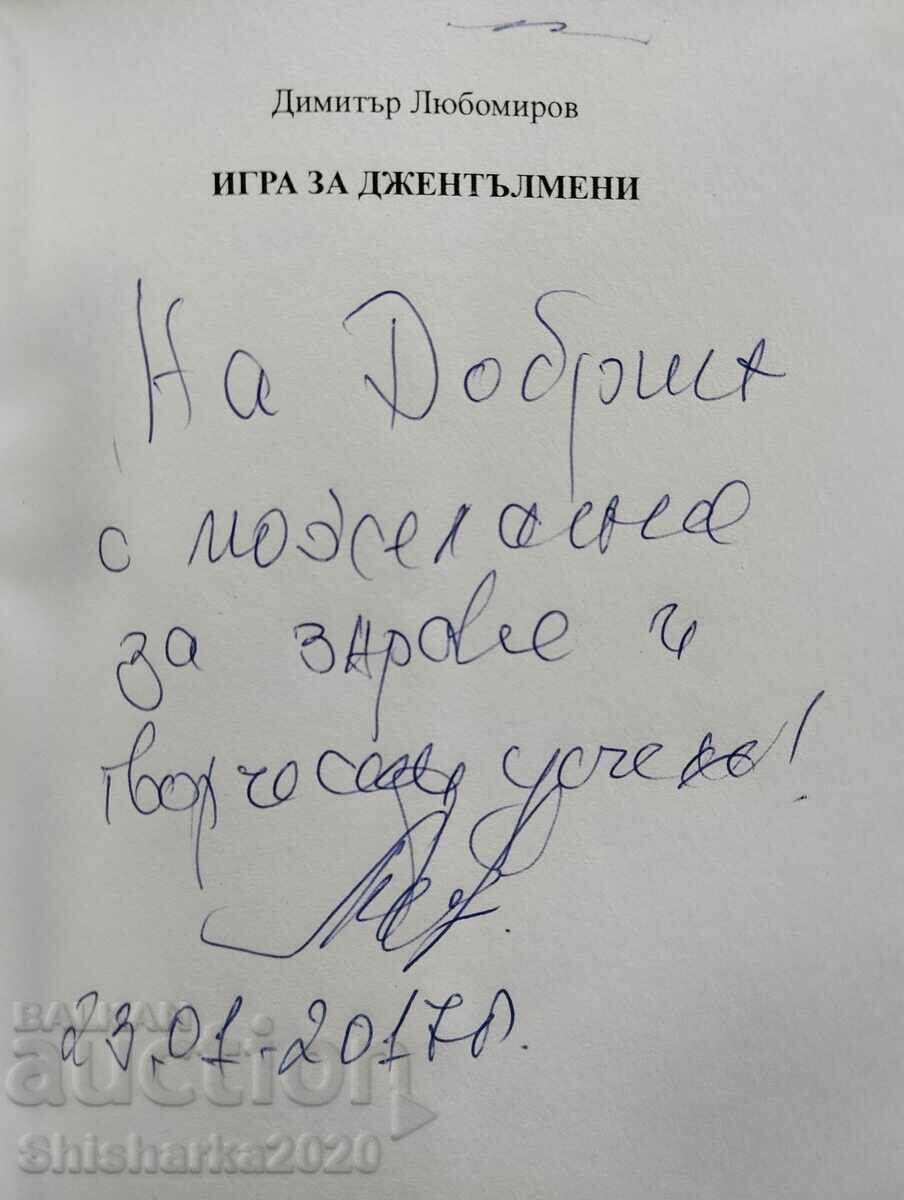 Димитър Любомиров
ИГРА ЗА ДЖЕНТЪЛМЕНИ
На Добрин
с пожелание
за здраве и
творчески успехи!
23.01.2017г.
BALKAN
auction
Shisharka2020